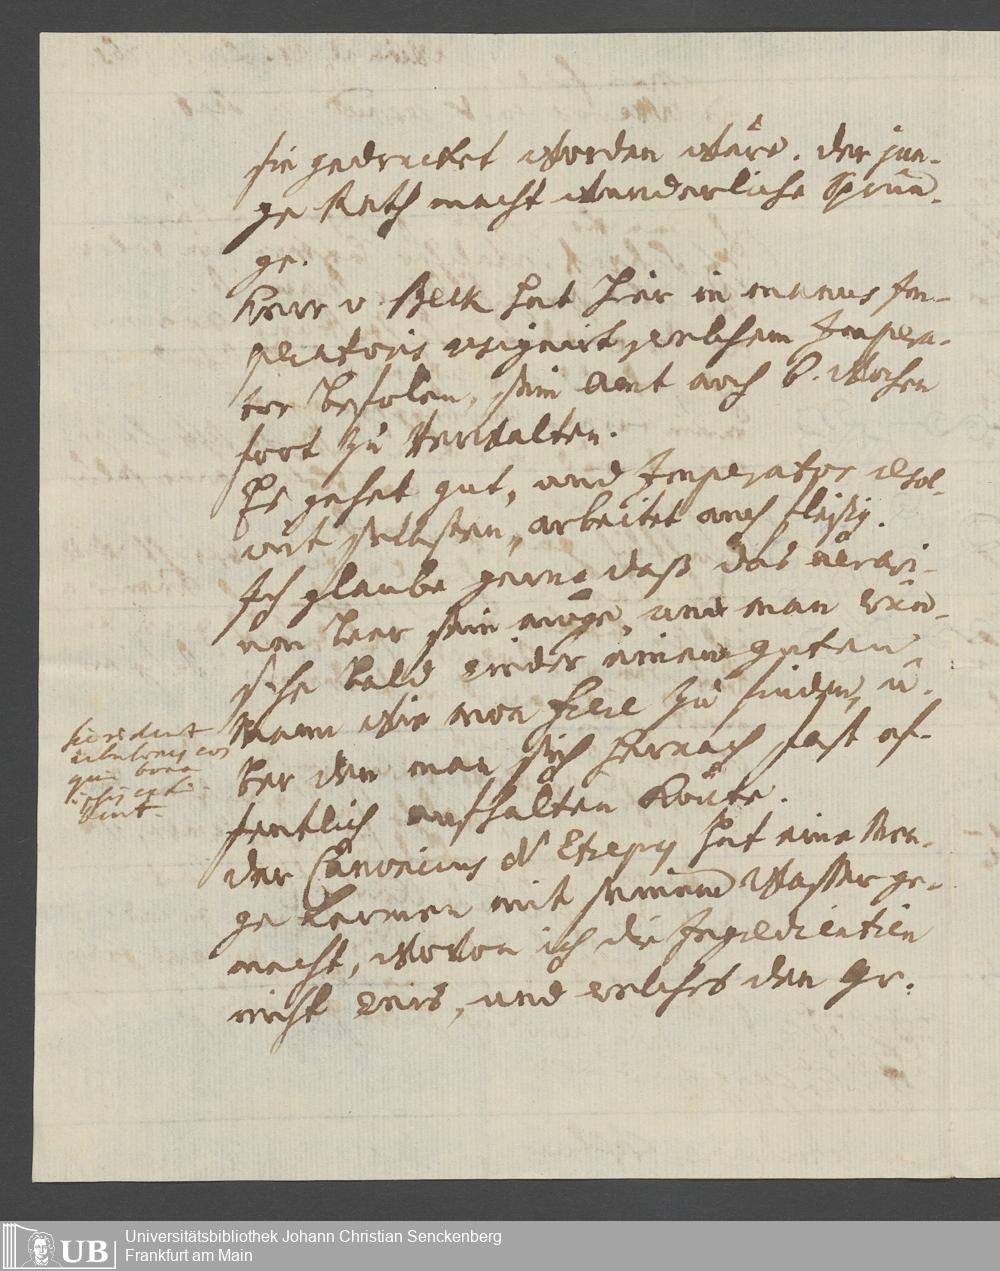 sie gedrucket worden wäre. der jun-
ge Rath macht wunderliche Sprün-
ge.
Herr v. Beck hat hier in manus Im-
peratoris resignirt, welchem Impera-
tor befolen, sein Amt noch 6. Wochen
fort zu verwalten.
Es gehet gut, und Imperator resol-
virt selbsten, arbeitet auch fleißig.
Ich glaube gerne daß das aerari-
um leer sein möge, und man wün-
sche bald wieder einen guten
Mann wie zu finden, ü-
ber den man sich hernach fast öf-
fentlich aufhalten könte.
der Canonicus hat eine Men-
ge Lermen mit seinem Wasser ge-
macht, wovon ich die Ingredientien
nicht weis, und welches den Gr.
eos
qui bona
sint.
UB
Universitätsbibliothek Johann Christian Senckenberg
Frankfurt am Main